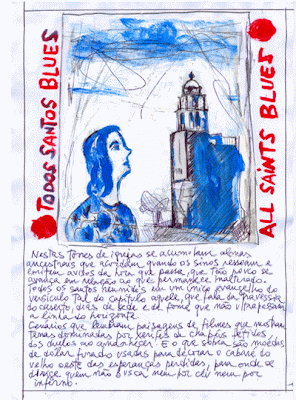 TODOS SANTOS BLUES
ALL SAINTS BLUES
Nestas torres de igrejas se alumbram almas
ancestrais que acordam quando os sinos ressoam e
emitem avisos da hora que passa, que tão pouco se
avança em relação ao que permanece inalterado.
Todos os santos reunidos em um único evangelho do
versículo tal do capítulo aquele, que fala da travessia
do deserto, dias de sede e de fome que não ultrapassam
a linha do horizonte.
Cenários que lembram paisagens de filmes que mostram
terras dominadas por xerifes de chapéus
dos duelos ao amanhecer. E o que sobra são moedas
de dólar furado usadas para decorar o cabaré do
velho oeste das esperanças perdidas, para onde se
dirige quem não busca nem por céu nem por
inferno.